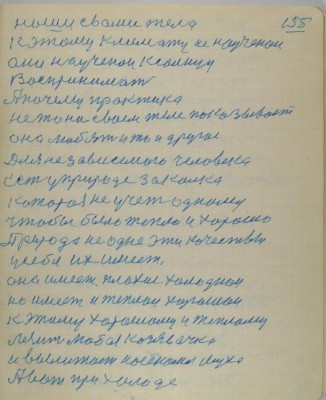 155
наши свами тела
к этому климату не наученои
они наученои к солнцу
Воспринимат
А почему практика
не то на своем теле показывает
она любят и то и другое
Для независимого человека
ест у природе заколка
которая не учет одному
чтобы было тепло и хорошо
Природа не одне эти качествы
у себя их имеет
она имеет плохие холоднои
но имеет и теплои хорошои
к этому хорошому и теплому
лезит любая козявачка
и вылитает насекомая муха
А вот при холоде